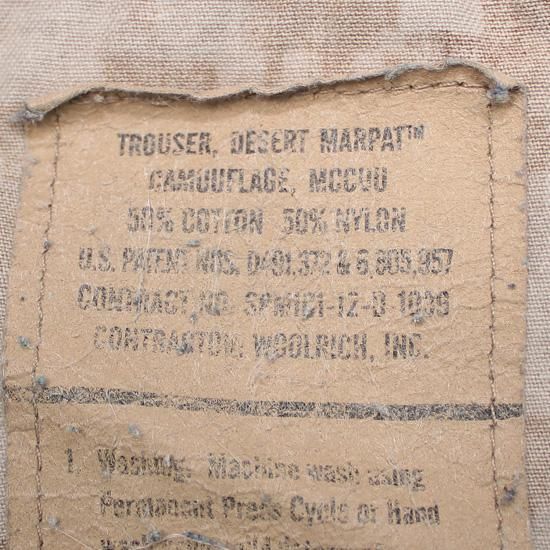 TROUSER, DESERT MARPAT™
CAMOUFLAGE, MCCUU
50% COTTON 50% NYLON
U.S. PATENT NOS. D491,372 & 6,805,957
CONTRACT NO. SPM1C1-12-D-1039
CONTRACTOR: WOOLRICH, INC.
1. Washing: Machine wash using
Permanent Press Cycle or Hand